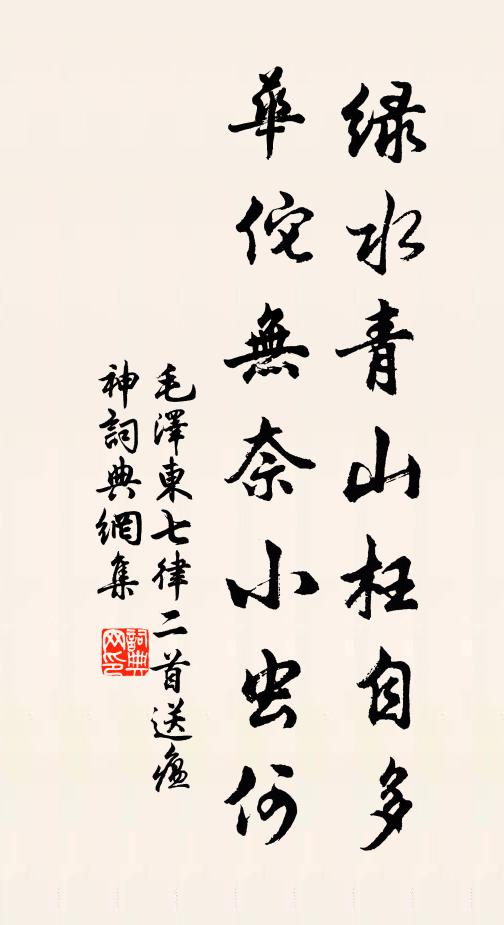 绿水青山枉自多
華佗無奈小虫何
毛澤東七律二首送瘟
神詞典網集
詞典网印